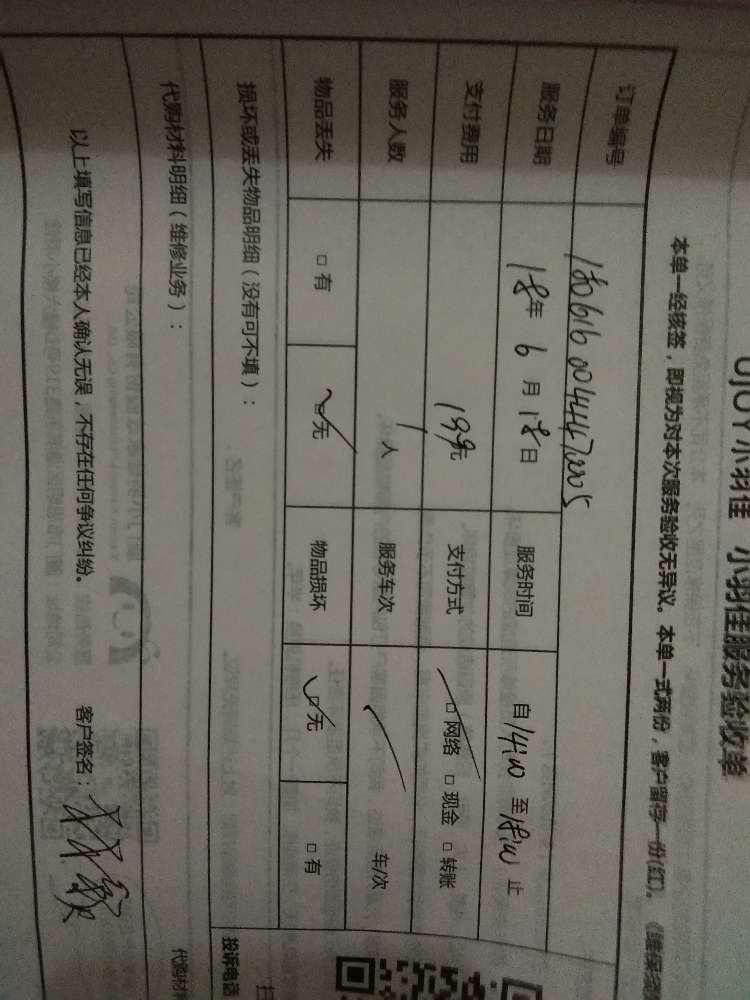 UJOY小羽佳 小羽佳服务验收单
本单一经核签，即视为对本次服务验收无异议。本单一式两份，客户留存一份(红)。
订单编号
服务日期 18年 6 月 18日 服务时间 自14:00 至18:00 止
支付费用 199元 支付方式 □网络 □现金 □转账
服务人数 1人 服务车次 车/次
物品丢失 □有 ☑无 物品损坏 ☑无 □有
损坏或丢失物品明细（没有可不填）：
代购材料明细（维修业务）：
以上填写信息已经本人确认无误，不存在任何争议纠纷。 客户签名：
投诉电话
代购材料